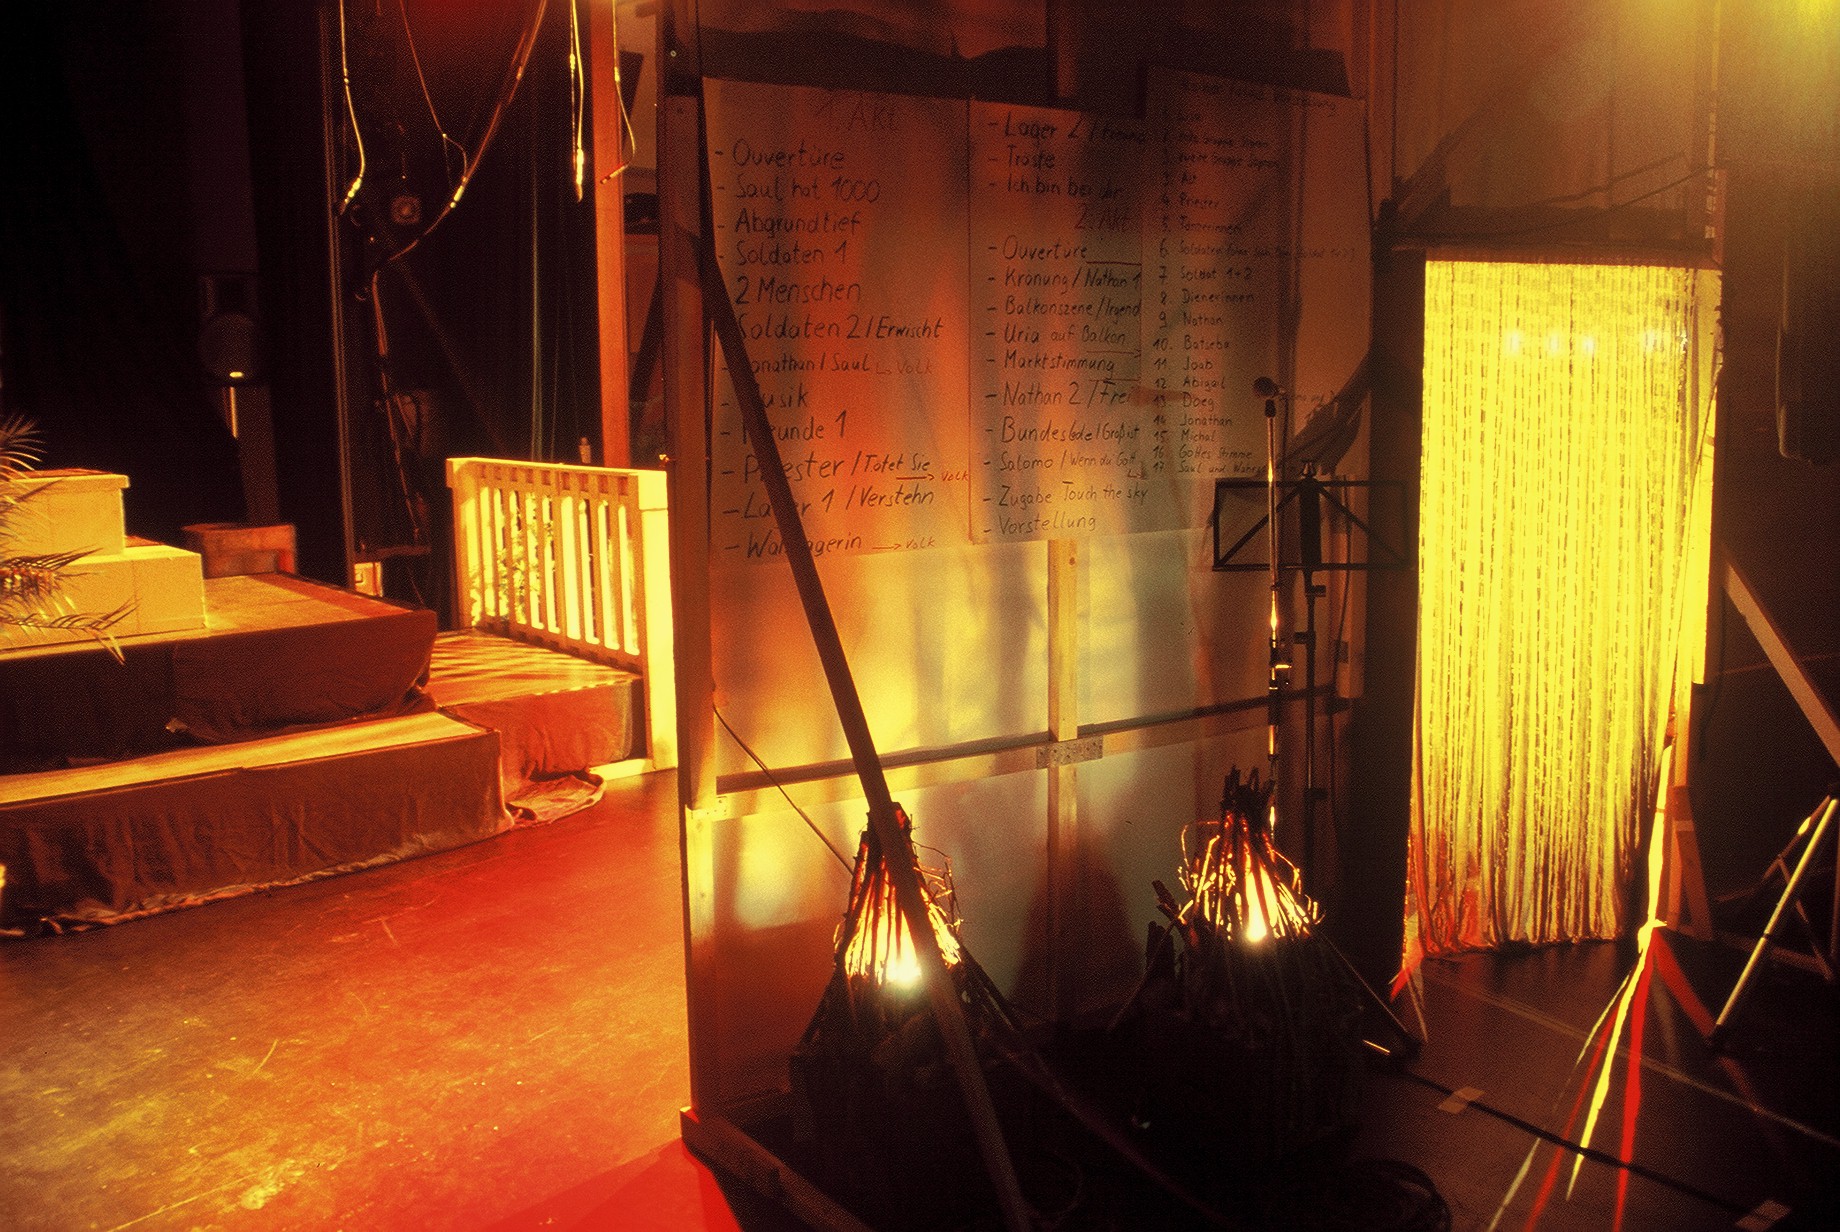 1. Akt
- Ouvertüre
- Saul hat 1000
- Abgrundtief
- Soldaten 1
2 Menschen
Soldaten 2 / Erwischt
- Jonathan / Saul ↳ Volk
- Musik
- Freunde 1
- Priester / Tötet Sie → Volk
- Lager 1 / Verstehn
- Wahrsagerin → Volk
- Lager 2 /
- Tröste
- Ich bin bei dir
2. Akt
- Ouvertüre
- Krönung / Nathan 1
- Balkonszene / Irgend
- Uria auf Balkon
- Marktstimmung
- Nathan 2 / Frei
- Bundeslade / Groß ist
- Salomo / Wenn du Gott
- Zugabe Touch the sky
- Vorstellung
3. Alt
4. Priester
5. Tänzerinnen
6. Soldaten
7. Soldat 1+2
8. Dienerinnen
9. Nathan
10. Batseba
11. Joab
12. Abigail
13. Doeg
14. Jonathan
15. Michal
16. Gottes Stimme
17. Saul und